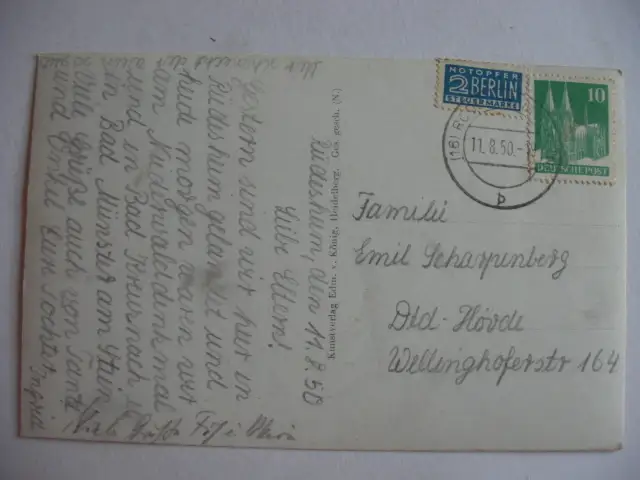 Rüdesheim, den 11.8.50
Liebe Eltern!
Gestern sind wir hier in
Rüdesheim gelandet und
heute morgen waren wir
am Niederwalddenkmal
und in Bad Kreuznach u.
in Bad Münster am Stein
Viele Grüße auch von Tante
und Onkel Eure Tochter
Ingrid
Viele Grüße
Kunstverlag Edm. v. König, Heidelberg. Ges. gesch. (N)
NOTOPFER
2 BERLIN
STEUERMARKE
10
DEUTSCHE POST
11.8.50.
b
Familie
Emil Scharpenberg
Dtd-Hörde
Wellinghoferstr 164